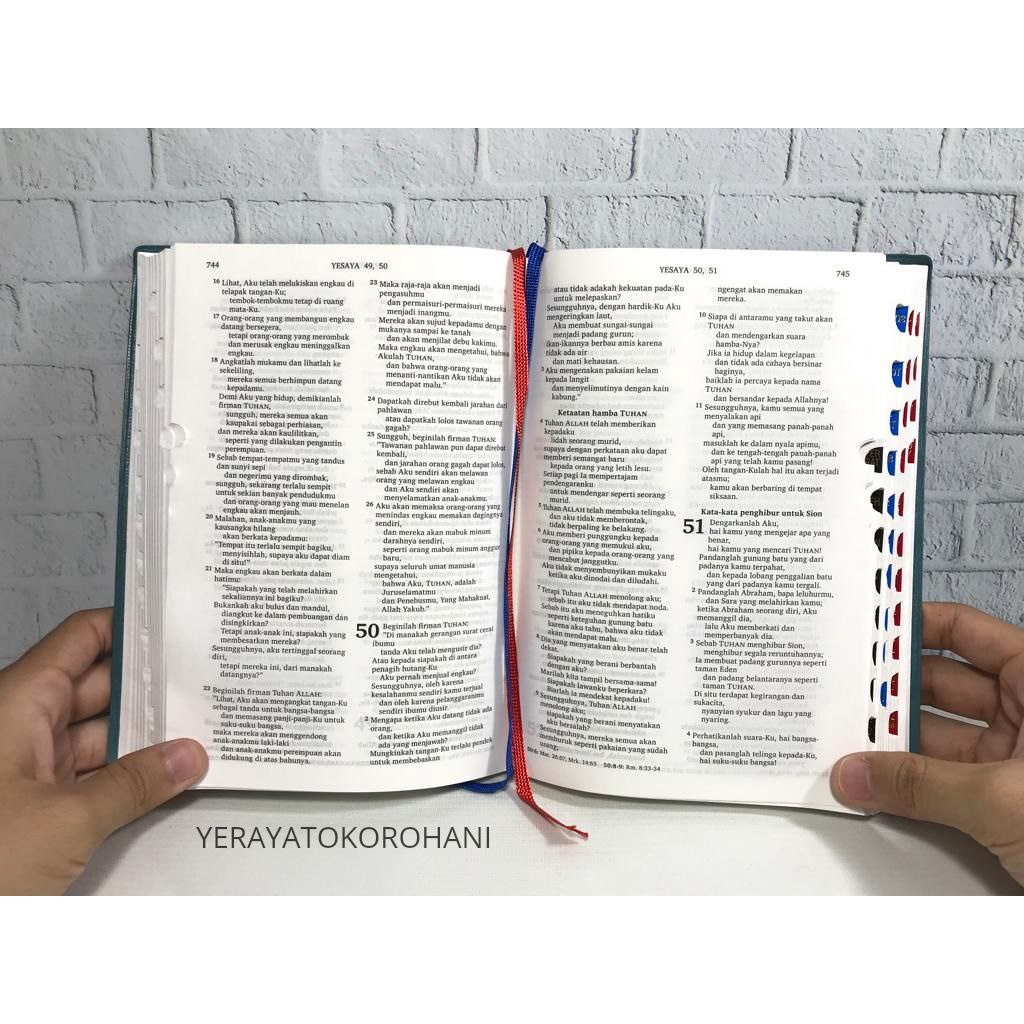 744
YESAYA 49, 50
16 Lihat, Aku telah melukiskan engkau di
telapak tangan-Ku;
tembok-tembokmu tetap di ruang
mata-Ku.
17 Orang-orang yang membangun engkau
datang bersegera,
tetapi orang-orang yang merombak
dan merusak engkau meninggalkan
engkau.
18 Angkatlah mukamu dan lihatlah ke
sekeliling,
mereka semua berhimpun datang
kepadamu.
Demi Aku yang hidup, demikianlah
firman TUHAN,
sungguh, mereka semua akan
kaupakai sebagai perhiasan,
dan mereka akan kaulilitkan,
seperti yang dilakukan pengantin
perempuan.
19 Sebab tempat-tempatmu yang tandus
dan sunyi sepi
dan negerimu yang dirombak,
sungguh, sekarang terlalu sempit
untuk sekian banyak pendudukmu
dan orang-orang yang mau menelan
engkau akan menjauh.
20 Malahan, anak-anakmu yang
kausangka hilang
akan berkata kepadamu:
"Tempat itu terlalu sempit bagiku,
menyisihlah, supaya aku dapat diam
di situ!"
21 Maka engkau akan berkata dalam
hatimu:
"Siapakah yang telah melahirkan
sekaliannya ini bagiku?
Bukankah aku bulus dan mandul,
diangkut ke dalam pembuangan dan
disingkirkan?
Tetapi anak-anak ini, siapakah yang
membesarkan mereka?
Sesungguhnya, aku tertinggal seorang
diri,
tetapi mereka ini, dari manakah
datangnya?"
22 Beginilah firman Tuhan ALLAH:
"Lihat, Aku akan mengangkat tangan-Ku
sebagai tanda untuk bangsa-bangsa
dan memasang panji-panji-Ku untuk
suku-suku bangsa,
maka mereka akan menggendong
anak-anakmu laki-laki
dan anak-anakmu perempuan akan
didukung di atas bahunya.
23 Maka raja-raja akan menjadi
pengasuhmu
dan permaisuri-permaisuri mereka
menjadi inangmu.
Mereka akan sujud kepadamu dengan
mukanya sampai ke tanah
dan akan menjilat debu kakimu.
Maka engkau akan mengetahui, bahwa
Akulah TUHAN,
dan bahwa orang-orang yang
menanti-nantikan Aku tidak akan
mendapat malu."
24 Dapatkah direbut kembali jarahan dari
pahlawan
atau dapatkah lolos tawanan orang
gagah?
25 Sungguh, beginilah firman TUHAN:
"Tawanan pahlawan pun dapat direbut
kembali,
dan jarahan orang gagah dapat lolos,
sebab Aku sendiri akan melawan
orang yang melawan engkau
dan Aku sendiri akan
menyelamatkan anak-anakmu.
26 Aku akan memaksa orang-orang yang
menindas engkau memakan dagingnya
sendiri,
dan mereka akan mabuk minum
darahnya sendiri,
seperti orang mabuk minum anggur
baru,
supaya seluruh umat manusia
mengetahui,
bahwa Aku, TUHAN, adalah
Juruselamatmu
dan Penebusmu, Yang Mahakuat,
Allah Yakub."
50 Beginilah firman TUHAN:
"Di manakah gerangan surat cerai
ibumu
tanda Aku telah mengusir dia?
Atau kepada siapakah di antara
penagih hutang-Ku
Aku pernah menjual engkau?
Sesungguhnya, oleh karena
kesalahanmu sendiri kamu terjual
dan oleh karena pelanggaranmu
sendiri ibumu diusir.
2 Mengapa ketika Aku datang tidak ada
orang,
dan ketika Aku memanggil tidak
ada yang menjawab?
Mungkinkah tangan-Ku terlalu pendek
untuk membebaskan
YESAYA 50, 51
745
atau tidak adakah kekuatan pada-Ku
untuk melepaskan?
Sesungguhnya, dengan hardik-Ku Aku
mengeringkan laut,
Aku membuat sungai-sungai
menjadi padang gurun;
ikan-ikannya berbau amis karena
tidak ada air
dan mati kehausan.
3 Aku mengenakan pakaian kelam
kepada langit
dan menyelimutinya dengan kain
kabung."
Ketaatan hamba TUHAN
4 Tuhan ALLAH telah memberikan
kepadaku
lidah seorang murid,
supaya dengan perkataan aku dapat
memberi semangat baru
kepada orang yang letih lesu.
Setiap pagi Ia mempertajam
pendengaranku
untuk mendengar seperti seorang
murid.
5 Tuhan ALLAH telah membuka telingaku,
dan aku tidak memberontak,
tidak berpaling ke belakang.
6 Aku memberi punggungku kepada
orang-orang yang memukul aku,
dan pipiku kepada orang-orang yang
mencabut janggutku.
Aku tidak menyembunyikan mukaku
ketika aku dinodai dan diludahi.
7 Tetapi Tuhan ALLAH menolong aku;
sebab itu aku tidak mendapat noda.
Sebab itu aku meneguhkan hatiku
seperti keteguhan gunung batu
karena aku tahu, bahwa aku tidak
akan mendapat malu.
8 Dia yang menyatakan aku benar telah
dekat.
Siapakah yang berani berbantah
dengan aku?
Marilah kita tampil bersama-sama!
Siapakah lawanku beperkara?
Biarlah ia mendekat kepadaku!
9 Sesungguhnya, Tuhan ALLAH
menolong aku;
siapakah yang berani menyatakan
aku bersalah?
Sesungguhnya, mereka semua akan
memburuk seperti pakaian yang sudah
usang,
ngengat akan memakan
mereka.
10 Siapa di antaramu yang takut akan
TUHAN
dan mendengarkan suara
hamba-Nya?
Jika ia hidup dalam kegelapan
dan tidak ada cahaya bersinar
baginya,
baiklah ia percaya kepada nama
TUHAN
dan bersandar kepada Allahnya!
11 Sesungguhnya, kamu semua yang
menyalakan api
dan yang memasang panah-panah
api,
masuklah ke dalam nyala apimu,
dan ke tengah-tengah panah-panah
api yang telah kamu pasang!
Oleh tangan-Kulah hal itu akan terjadi
atasmu;
kamu akan berbaring di tempat
siksaan.
Kata-kata penghibur untuk Sion
51 Dengarkanlah Aku,
hai kamu yang mengejar apa yang
benar,
hai kamu yang mencari TUHAN!
Pandanglah gunung batu yang dari
padanya kamu terpahat,
dan kepada lobang penggalian batu
yang dari padanya kamu tergali.
2 Pandanglah Abraham, bapa leluhurmu,
dan Sara yang melahirkan kamu;
ketika Abraham seorang diri, Aku
memanggil dia,
lalu Aku memberkati dan
memperbanyak dia.
3 Sebab TUHAN menghibur Sion,
menghibur segala reruntuhannya;
Ia membuat padang gurunnya seperti
taman Eden
dan padang belantaranya seperti
taman TUHAN.
Di situ terdapat kegirangan dan
sukacita,
nyanyian syukur dan lagu yang
nyaring.
4 Perhatikanlah suara-Ku, hai bangsa-
bangsa,
dan pasanglah telinga kepada-Ku,
hai suku-suku bangsa!
50:6: Mat. 26:67; Mrk. 14:65 50:8-9: Rm. 8:33-34
YERAYATOKOROHANI